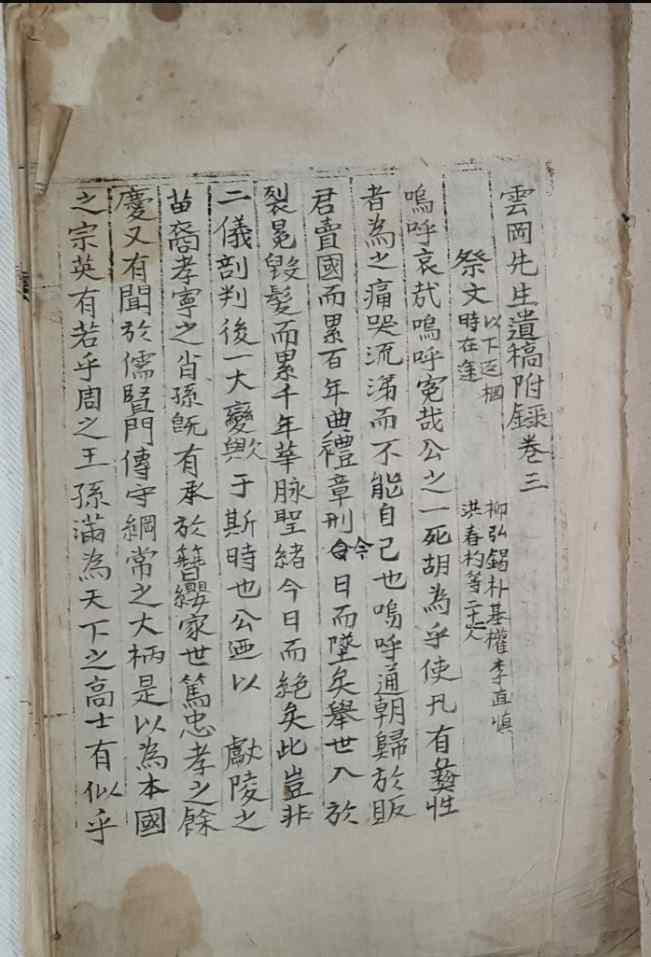 雲岡先生遺稿附錄卷三
祭文 以下返柩時在蓬 柳弘錫朴基權李直愼洪春杓等二十七人
嗚呼哀哉嗚呼寃哉公之一死胡為乎使凡有彜性
者為之痛哭流涕而不能自已也嗚呼通朝歸於販
君賣國而累百年典禮章刑今日而墜矣舉世入於
裂冕毀髮而累千年華脉聖緒今日而絕矣此豈非
二儀剖判後一大變歟于斯時也公迺以 獻陵之
苗裔孝寧之肖孫旣有承於簪纓家世篤忠孝之餘
慶又有聞於儒賢門傳守綱常之大柄是以為本國
之宗英有若乎周之王孫滿為天下之高士有似乎